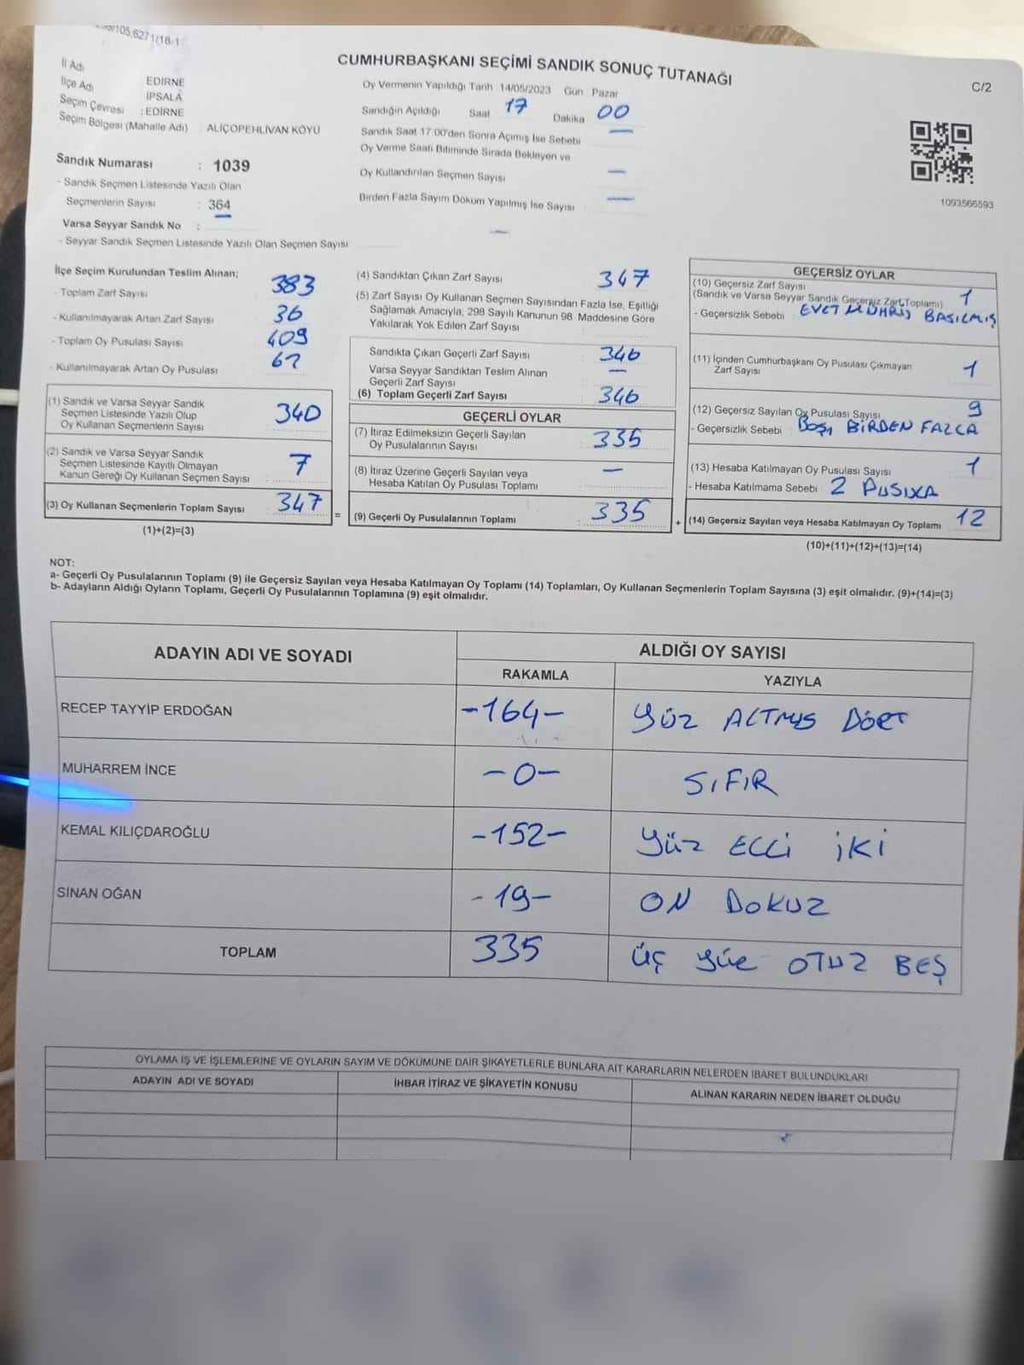 CUMHURBAŞKANI SEÇİMİ SANDIK SONUÇ TUTANAĞI
C/2
İl Adı
İlçe Adı EDİRNE
Seçim Çevresi İPSALA
: EDİRNE
Seçim Bölgesi (Mahalle Adı) : ALİÇOPEHLİVAN KÖYÜ
Oy Vermenin Yapıldığı Tarih 14/05/2023 Gün Pazar
Sandığın Açıldığı Saat 17 Dakika 00
Sandık Saat 17:00'den Sonra Açılmış İse Sebebi —
Oy Verme Saati Bitiminde Sırada Bekleyen ve
Oy Kullandırılan Seçmen Sayısı —
Birden Fazla Sayım Döküm Yapılmış İse Sayısı —
1093566593
Sandık Numarası : 1039
- Sandık Seçmen Listesinde Yazılı Olan
Seçmenlerin Sayısı : 364
Varsa Seyyar Sandık No :
- Seyyar Sandık Seçmen Listesinde Yazılı Olan Seçmen Sayısı —
İlçe Seçim Kurulundan Teslim Alınan;
- Toplam Zarf Sayısı 383
- Kullanılmayarak Artan Zarf Sayısı 36
- Toplam Oy Pusulası Sayısı 409
- Kullanılmayarak Artan Oy Pusulası
(1) Sandık ve Varsa Seyyar Sandık
Seçmen Listesinde Yazılı Olup
Oy Kullanan Seçmenlerin Sayısı 340
(2) Sandık ve Varsa Seyyar Sandık
Seçmen Listesinde Kayıtlı Olmayan
Kanun Gereği Oy Kullanan Seçmen Sayısı 7
(3) Oy Kullanan Seçmenlerin Toplam Sayısı 347
(1)+(2)=(3)
=
(4) Sandıktan Çıkan Zarf Sayısı 347
(5) Zarf Sayısı Oy Kullanan Seçmen Sayısından Fazla İse, Eşitliği
Sağlamak Amacıyla, 298 Sayılı Kanunun 98. Maddesine Göre
Yakılarak Yok Edilen Zarf Sayısı
Sandıkta Çıkan Geçerli Zarf Sayısı 346
Varsa Seyyar Sandıktan Teslim Alınan
Geçerli Zarf Sayısı —
(6) Toplam Geçerli Zarf Sayısı 346
GEÇERLİ OYLAR
(7) İtiraz Edilmeksizin Geçerli Sayılan
Oy Pusulalarının Sayısı 335
(8) İtiraz Üzerine Geçerli Sayılan veya
Hesaba Katılan Oy Pusulası Toplamı —
(9) Geçerli Oy Pusulalarının Toplamı 335
+
GEÇERSİZ OYLAR
(10) Geçersiz Zarf Sayısı
(Sandık ve Varsa Seyyar Sandık Geçersiz Zarf Toplamı) 1
- Geçersizlik Sebebi EVET MÜHRÜ BASILMIŞ
(11) İçinden Cumhurbaşkanı Oy Pusulası Çıkmayan
Zarf Sayısı 1
(12) Geçersiz Sayılan Oy Pusulası Sayısı 9
- Geçersizlik Sebebi BOŞ, BİRDEN FAZLA
(13) Hesaba Katılmayan Oy Pusulası Sayısı 1
- Hesaba Katılmama Sebebi 2 PUSULA
(14) Geçersiz Sayılan veya Hesaba Katılmayan Oy Toplamı 12
(10)+(11)+(12)+(13)=(14)
NOT:
a- Geçerli Oy Pusulalarının Toplamı (9) ile Geçersiz Sayılan veya Hesaba Katılmayan Oy Toplamı (14) Toplamları, Oy Kullanan Seçmenlerin Toplam Sayısına (3) eşit olmalıdır. (9)+(14)=(3)
b- Adayların Aldığı Oyların Toplamı, Geçerli Oy Pusulalarının Toplamına (9) eşit olmalıdır.
ADAYIN ADI VE SOYADI ALDIĞI OY SAYISI
RAKAMLA YAZIYLA
RECEP TAYYİP ERDOĞAN -164- YÜZ ALTMIŞ DÖRT
MUHARREM İNCE -0- SIFIR
KEMAL KILIÇDAROĞLU -152- YÜZ ELLİ İKİ
SİNAN OĞAN -19- ON DOKUZ
TOPLAM 335 ÜÇ YÜZ OTUZ BEŞ
OYLAMA İŞ VE İŞLEMLERİNE VE OYLARIN SAYIM VE DÖKÜMÜNE DAİR ŞİKAYETLERLE BUNLARA AİT KARARLARIN NELERDEN İBARET BULUNDUKLARI
ADAYIN ADI VE SOYADI İHBAR İTİRAZ VE ŞİKAYETİN KONUSU ALINAN KARARIN NEDEN İBARET OLDUĞU